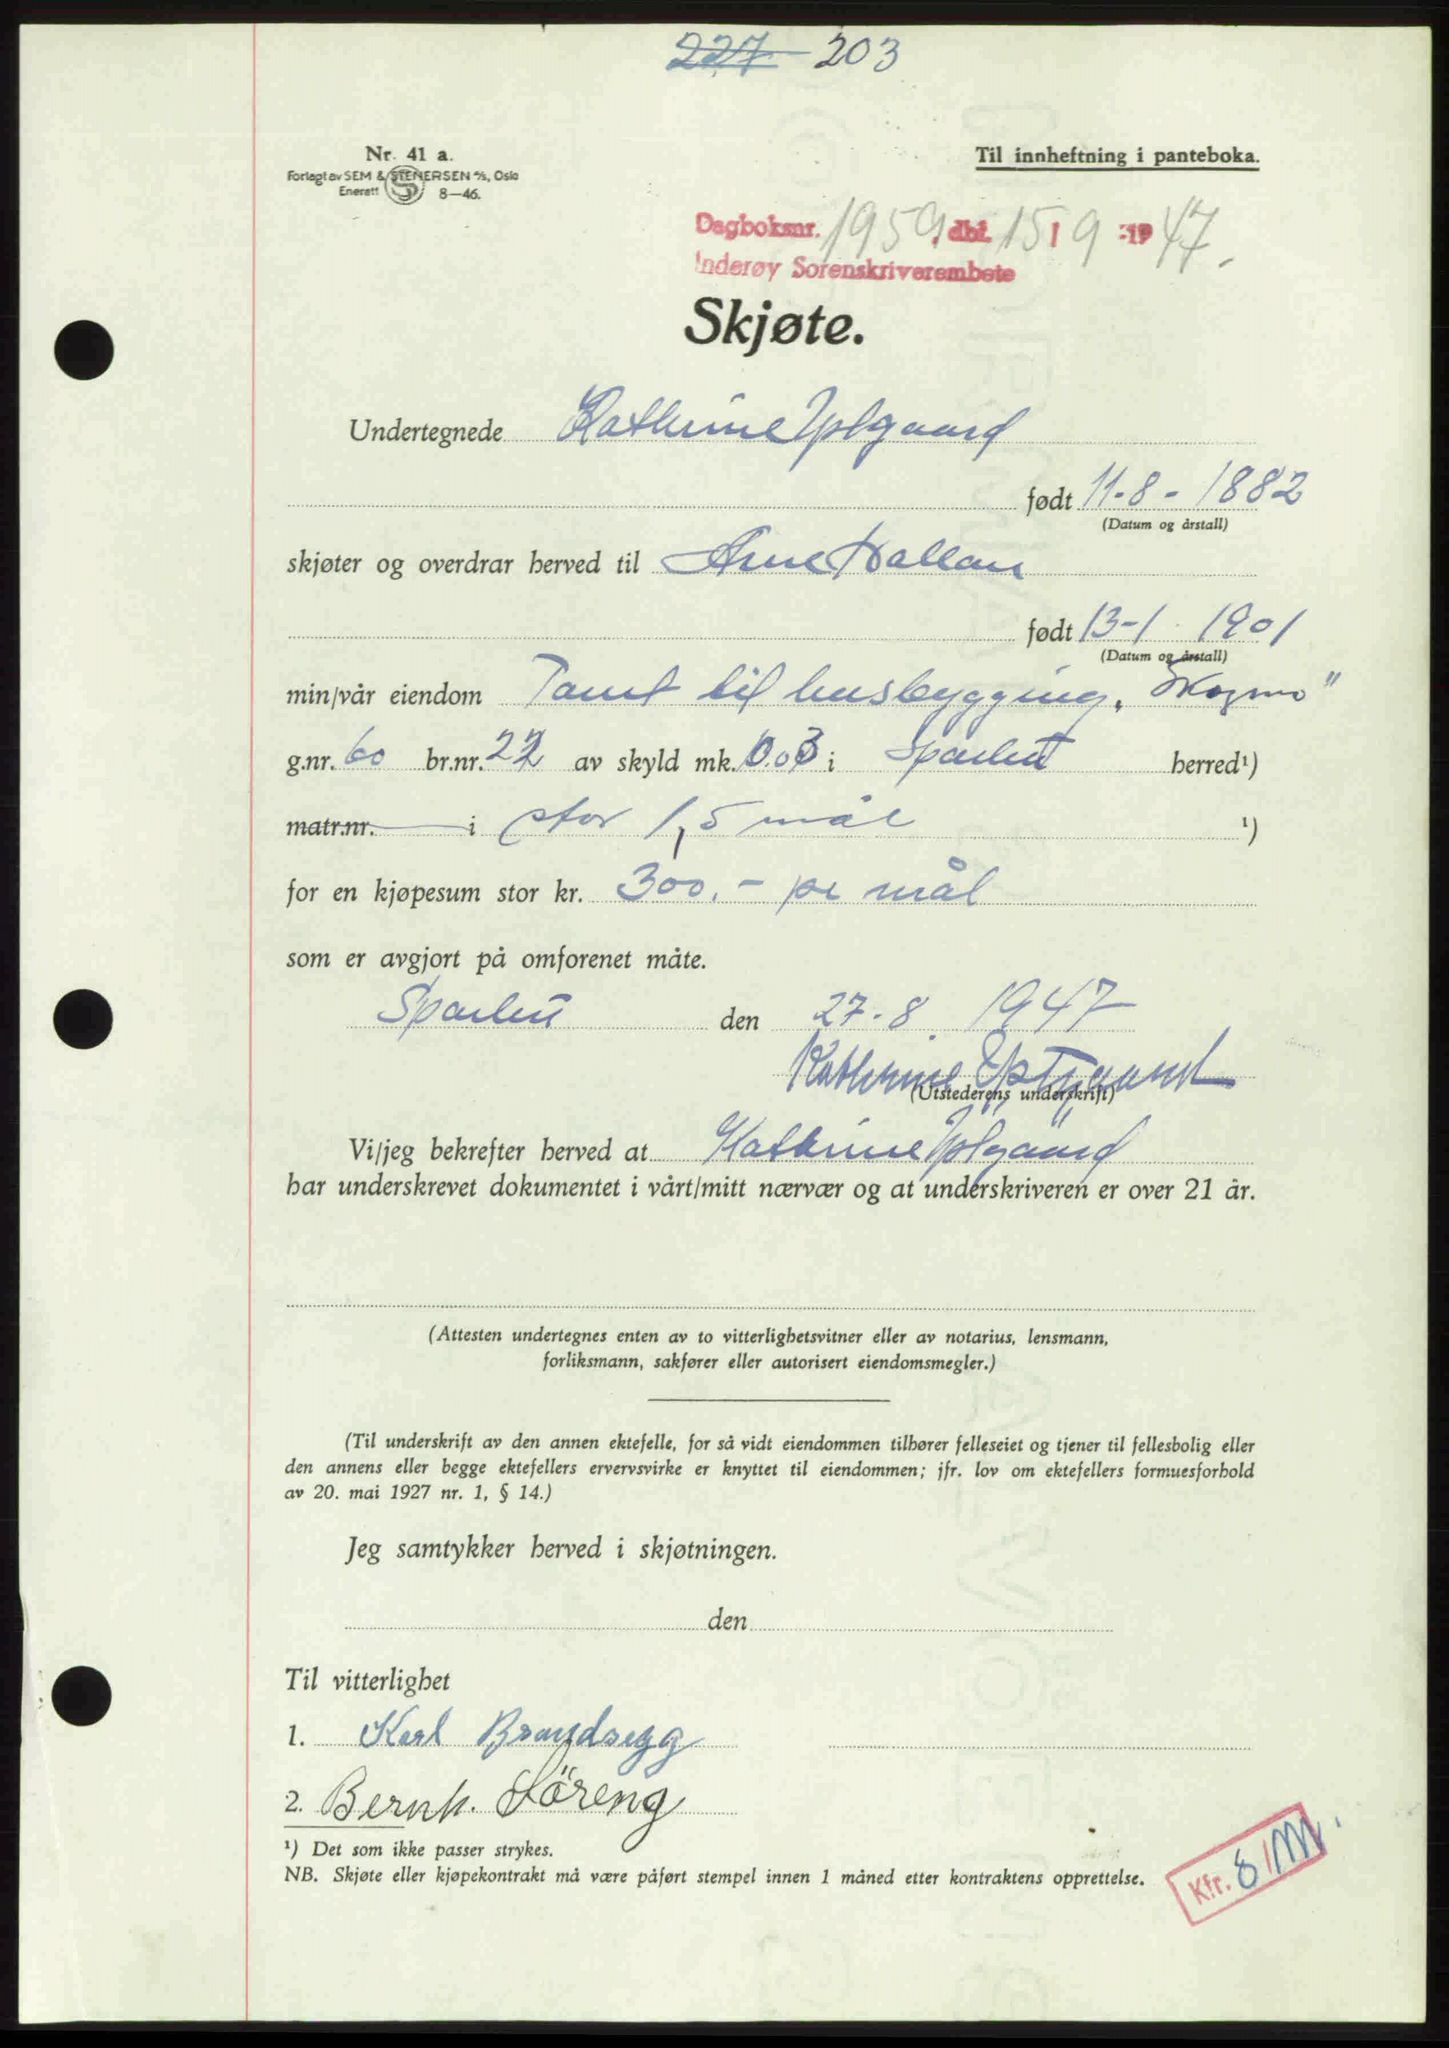 227 203
Nr. 41 a.
Forlagt av SEM & STENERSEN A/S, Oslo
Enerett 8—46.
Til innheftning i panteboka.
Dagboksnr. 1959 dbf. 15/9 19 47.
Inderøy Sorenskriverembete
Skjøte.
Undertegnede Kathrine
født 11-8-1882
(Datum og årstall)
skjøter og overdrar herved til Arne Hallan
født 13-1 1901
(Datum og årstall)
min/vår eiendom Tomt til husbygging, Skogmo"
g.nr. 60 br.nr. 22 av skyld mk. 0.03 i Sparbu herred¹)
matr.nr. i stor 1,5 mål ¹)
for en kjøpesum stor kr. 300.- pr mål
som er avgjort på omforenet måte.
Sparbu den 27-8 1947
Kathrine
(Utstederens underskrift)
Vi/jeg bekrefter herved at Kathrine
har underskrevet dokumentet i vårt/mitt nærvær og at underskriveren er over 21 år.
(Attesten undertegnes enten av to vitterlighetsvitner eller av notarius, lensmann,
forliksmann, sakfører eller autorisert eiendomsmegler.)
(Til underskrift av den annen ektefelle, for så vidt eiendommen tilhører felleseiet og tjener til fellesbolig eller
den annens eller begge ektefellers ervervsvirke er knyttet til eiendommen; jfr. lov om ektefellers formuesforhold
av 20. mai 1927 nr. 1, § 14.)
Jeg samtykker herved i skjøtningen.
den
Til vitterlighet
1. Karl Brandsegg
2. Bernh. Söreng
¹) Det som ikke passer strykes.
NB. Skjøte eller kjøpekontrakt må være påført stempel innen 1 måned etter kontraktens opprettelse.
Kfr. 8